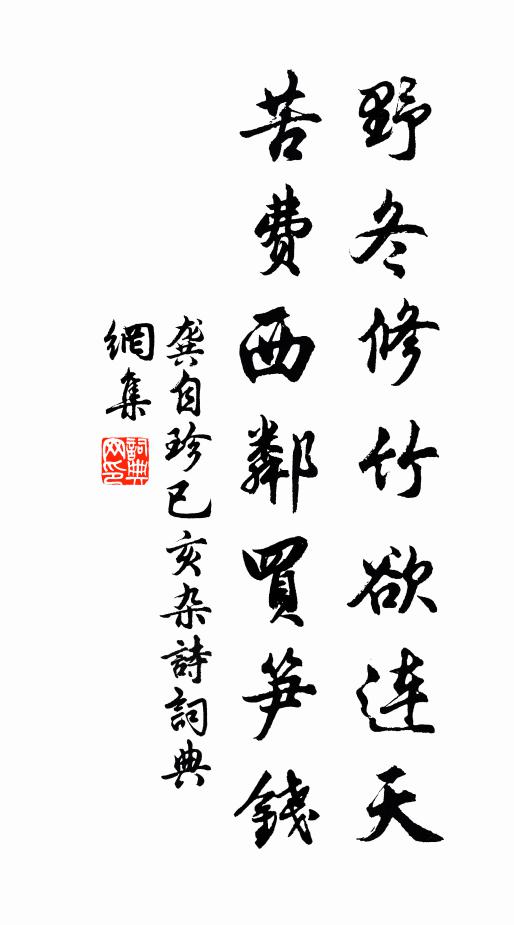 野冬修竹欲連天
苦費西鄰買笋錢
龔自珍己亥杂詩詞典
網集
詞典
网印